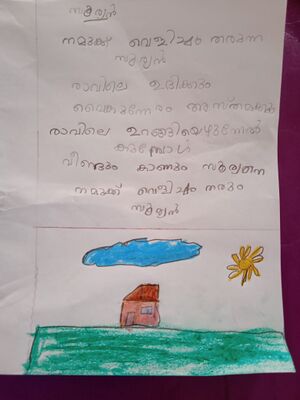 സൂര്യൻ
നമുക്ക് വെളിച്ചം തരുന്ന
സൂര്യൻ
രാവിലെ ഉദിക്കും
വൈകുന്നേരം അസ്തമക്കും
രാവിലെ ഉറങ്ങിയെഴുന്നേൽ
ക്കുമ്പോൾ
വീണ്ടും കാണും സൂര്യനെ
നമുക്ക് വെളിച്ചം തരും
സൂര്യൻ